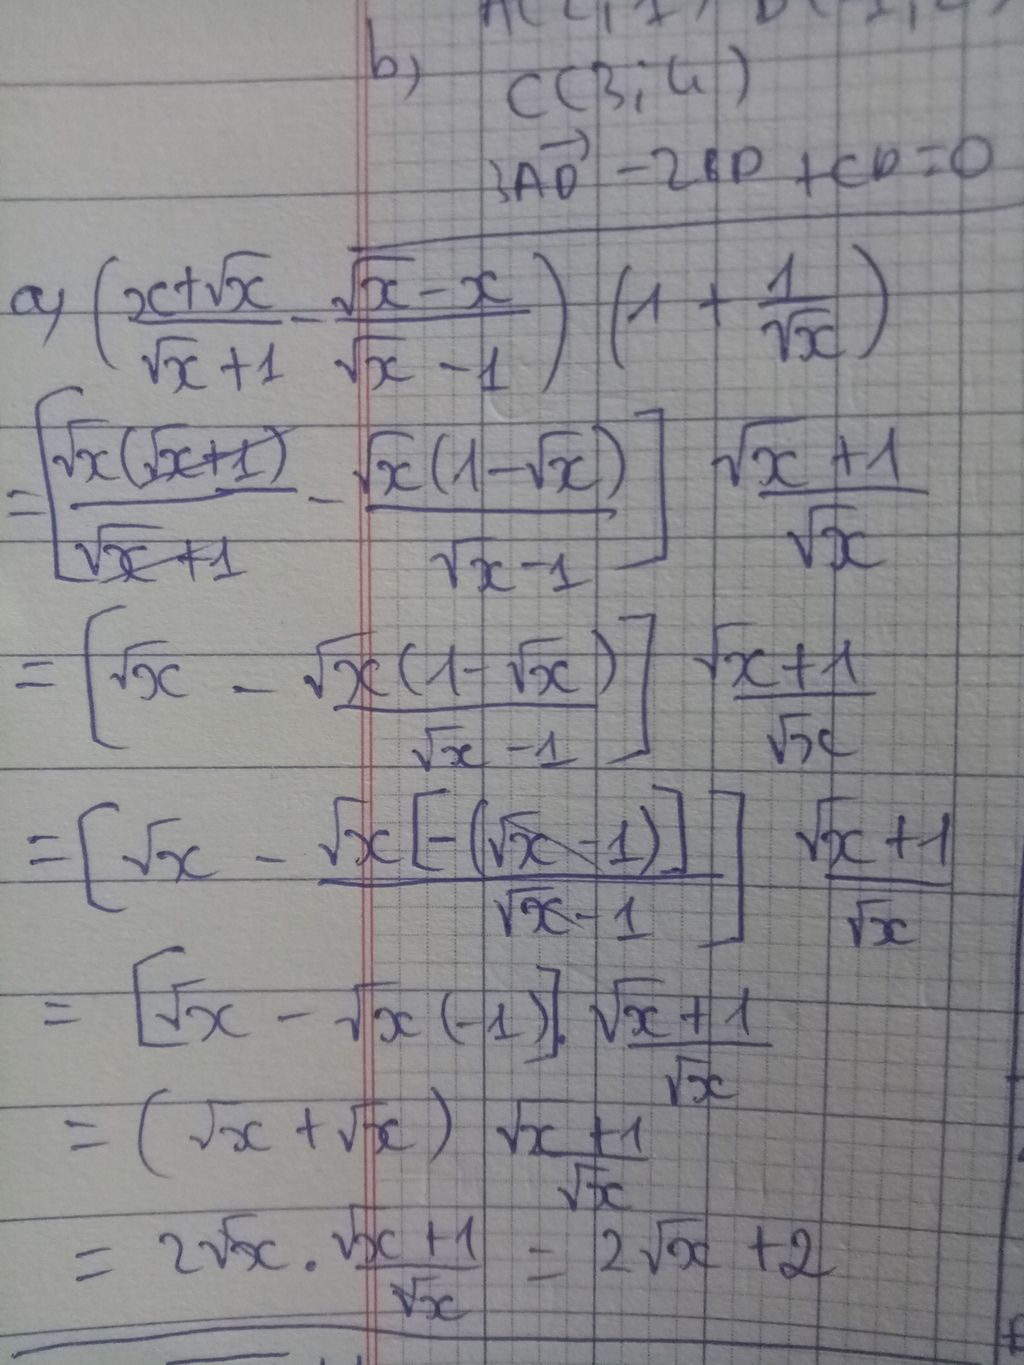 b)
C(3;4)
3AD⃗ - 2BD + CD = 0
a) ((x+√x)/(√x+1) - (√x-x)/(√x-1)) (1 + 1/√x)
= [√x(√x+1)/(√x+1) - √x(1-√x)/(√x-1)] (√x+1)/√x
= [√x - √x(1-√x)/(√x-1)] (√x+1)/√x
= [√x - √x[-(√x-1)]/(√x-1)] (√x+1)/√x
= [√x - √x(-1)]. (√x+1)/√x
= (√x+√x) (√x+1)/√x
= 2√x . (√x+1)/√x = 2√x +2